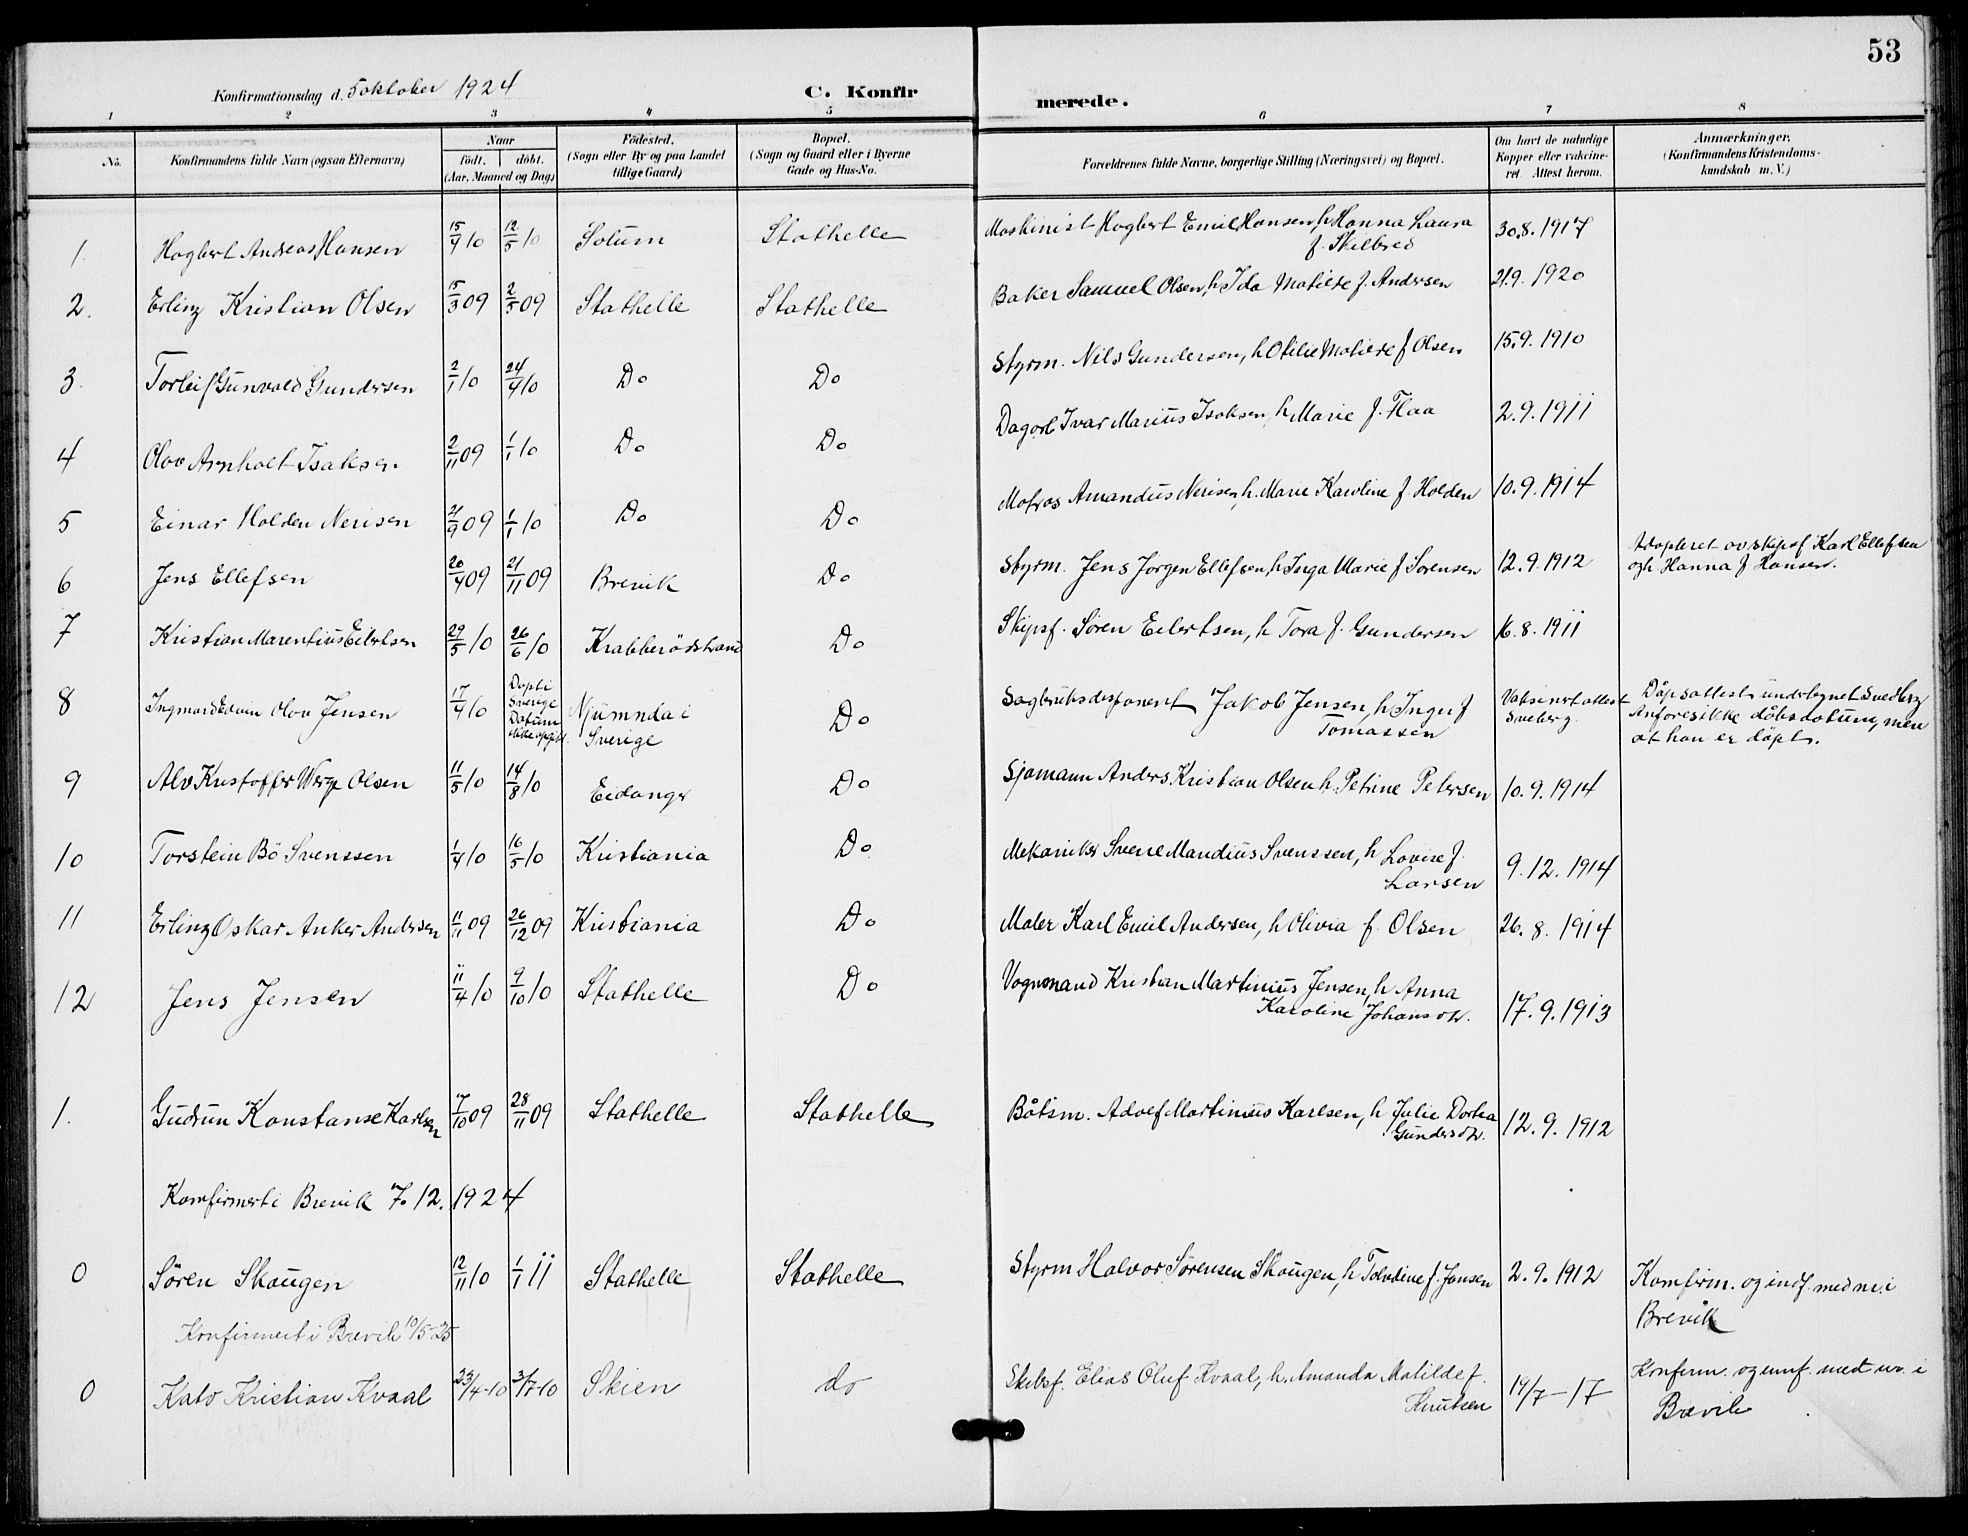 53
Konfirmationsdag d. 5 oktober 1924 C. Konfirmerede.
1 2 3 4 5 6 7 8
No. Konfirmandens fulde Navn (ogsaa Efternavn) Naar födt. döbt. (Aar, Maaned og Dag) Födested. (Sogn eller By og paa Landet tillige Gaard) Bopæl. (Sogn og Gaard eller i Byerne Gade og Hus-No. Forældrenes fulde Navne, borgerlige Stilling (Næringsvei) og Bopæl. Om havt de naturlige Kopper eller vakcineret. Attest herom. Anmærkninger. (Konfirmandens Kristendomskundskab m. V.)
1. Hagbert Andreas Hansen 15/4 10 12/5 10 Solum Stathelle Maskinist Hagbert Emil Hansen, h Hanna Laura f. Skilbred 30.8.1917
2. Erling Kristian Olsen 15/3 09 2/5 09 Stathelle Stathelle Baker Samuel Olsen, h Ida Matilde f. Andersen 21.9.1920
3. Torleif Gunvald Gundersen 2/1 10 24/4 10 Do Do Styrm. Nils Gundersen, h Otilie Matilde f Olsen 15.9.1910
4 Olav Arnholt Isaksen 2/11 09 1/1 10 Do Do Dagarb Ivar Marius Isaksen, h Marie f. Flaa 2.9.1911
5 Einar Holden Nerisen 21/9 09 1/1 10 Do Do Matros Amandus Nerisen, h. Marie Karoline f. Holden 10.9.1914
6 Jens Ellefsen 20/4 09 21/11 09 Brevik Do Styrm. Jens Jörgen Ellefsen, h Inga Marie f Sorensen 12.9.1912 Adopteret av skipsf Karl Ellefsen og h Hanna f Hansen.
7 Kristian Marentius Eilertsen 29/5 10 26/6 10 Krabberödstrand Do Skipsf. Søren Eilertsen, h Tora f. Gundersen 16.8.1911
8 Ingmar Edvin Olov Jensen 17/4 10 Döpt i Sverige Datum ikke opgit. Njurunda i Sverige Do Sagbruksdisponent Jakob Jensen, h Inger f Tomassen Vaksinert attest Sveberg. Dåpsattest undertegnet Svedberg Anföres ikke dåbsdatum, men at han er döpt.
9 Alv Kristoffer Werge Olsen 11/5 10 14/8 10 Eidanger Do Sjømann Anders Kristian Olsen h. Petrine Petersen 10.9.1914
10 Torstein Bö Svenssen 1/4 10 16/5 10 Kristiania Do Mekaniker Sverre Mandius Svenssen, h Lovise f. Larsen 9.12.1914
11 Erling Oskar Anker Andersen 11/11 09 26/12 09 Kristiania Do Maler Karl Emil Andersen, h Olivia f. Olsen 26.8.1914
12 Jens Jensen 11/4 10 9/10 10 Stathelle Do Vognmand Kristian Martinius Jensen, h Anna Karoline Johansdtr. 17.9.1913
1. Gudrun Konstanse Karlsen 7/10 09 28/11 09 Stathelle Stathelle Båtsm. Adolf Martinius Karlsen, h Julie Dortea Gundersdtr. 12.9.1912
Komfirmert i Brevik 7. 12. 1924
0 Sören Skaugen 12/11 10 1/1 11 Stathelle Stathelle Styrm Halvor Sørensen Skaugen, h Tolvdine f. Jansen 2.9.1912 Komfirm. og indf. med nr. i Brevik
Konfirmert i Brevik 10/5-25
0 Kato Kristian Kvaal 23/4-10 3/7-10 Skien do Skibsf. Elias Oluf Kvaal, h. Amanda Matilde f. Knutsen 14/7-17 Konfirm. og innf. med nr. i Brevik